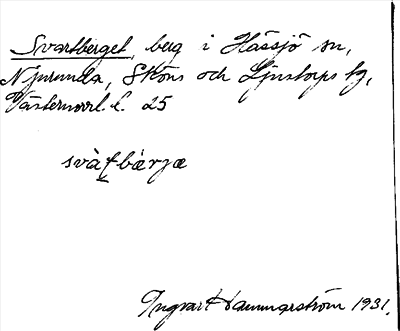 Svartberget, berg i Hässjö sn,
Njurunda, Sköns och Ljustorps tg,
Västernorrl. l. 25
svàtbàrjæ
Ingvar Hammarström 1931.